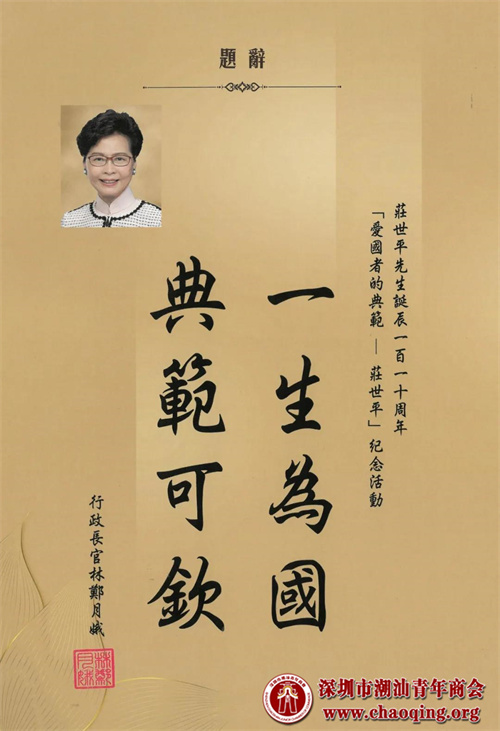 題辭
莊世平先生誕辰一百一十周年
「愛國者的典範 — 莊世平」紀念活動
一生為國
典範可欽
行政長官林鄭月娥
深圳市潮汕青年商会
www.chaoqing.org